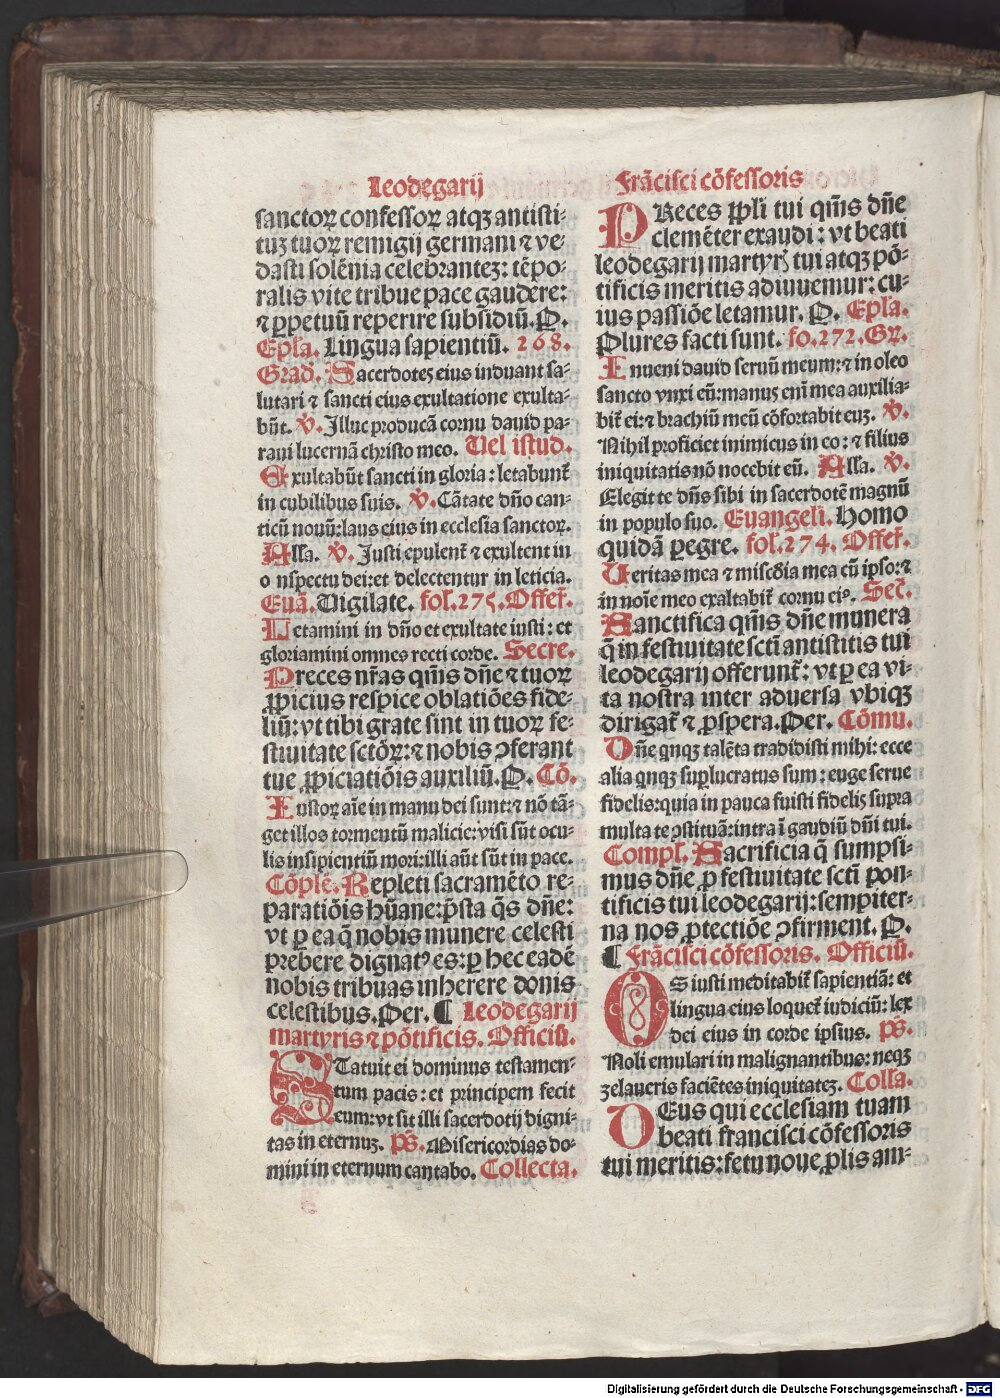 Leodegarij
sanctoꝝ confessoꝝ atqꝫ antisti-
tuꝫ tuoꝝ remigij germani ⁊ ve-
dasti solēnia celebranteꝫ: tēpo-
ralis vite tribue pace gaudere:
⁊ ꝑpetuū reperire subsidiū. P.
Epl̄a. Lingua sapientiū. 268.
Grad. Sacerdotes eius induant sa-
lutari ⁊ sancti eius exultatione exulta-
būt. V̄. Illuc producā cornu dauid pa-
raui lucernā christo meo. Uel istud.
Exultabūt sancti in gloria: letabunt̄
in cubilibus suis. V̄. Cātate dn̄o can-
ticū nouū: laus eius in ecclesia sanctoꝝ.
All'a. V̄. Justi epulent̄ ⁊ exultent in
o nspectu dei: et delectentur in leticia.
Euā. Vigilate. fol. 275. Offer̄.
Letamini in dn̄o et exultate iusti: et
gloriamini omnes recti corde. Secre.
Preces nr̄as qm̄s dn̄e ⁊ tuoꝝ
ꝓpicius respice oblatiōes fide-
liū: vt tibi grate sint in tuoꝝ fe-
stiuitate sctōꝝ: ⁊ nobis ↄferant
tue ꝓpiciatiōis auxiliū. P. Cō.
Iustoꝝ aīe in manu dei sunt: ⁊ nō tā-
get illos tormentū malicie: visi sūt ocu-
lis insipientiū mori: illi aūt sūt in pace.
Cōplē. Repleti sacramēto re-
paratiōis hūane: p̄sta q̄s dn̄e:
vt ꝑ ea q̄ nobis munere celesti
prebere dignatꝰ es: ꝑ hec eadē
nobis tribuas inherere donis
celestibus. Per. ¶ Leodegarij
martyris ⁊ pōtificis. Officiū.
STatuit ei dominus testamen-
tum pacis: et principem fecit
eum: vt sit illi sacerdotij digni-
tas in eternuꝫ. Ps̄. Misericordias do-
mini in eternum cantabo. Collecta.
Frācisci cōfessoris
PReces ppl̄i tui qm̄s dn̄e
clemēter exaudi: vt beati
leodegarij martyrꝭ tui atqꝫ pō-
tificis meritis adiuuemur: cu-
ius passiōe letamur. P. Epl̄a.
Plures facti sunt. fo. 272. Gꝝ.
Inueni dauid seruū meum: ⁊ in oleo
sancto vnxi eū: manus enī mea auxilia-
bit̄ ei: ⁊ brachiū meū cōfortabit euꝫ. V̄.
Nihil proficiet inimicus in eo: ⁊ filius
iniquitatis nō nocebit eū. All'a. V̄.
Elegit te dn̄s sibi in sacerdotē magnū
in populo suo. Euangeli. Homo
quidā ꝑegre. fol. 274. Offer̄.
Ueritas mea ⁊ misc̄dia mea cū ipso: ⁊
in noīe meo exaltabit̄ cornu eiꝰ. Secr̄.
Sanctifica qm̄s dn̄e munera
q̄ in festiuitate sctī antistitis tui
leodegarij offerunt̄: vt ꝑ ea vi-
ta nostra inter aduersa vbiqꝫ
dirigat̄ ⁊ ꝓspera. Per. Cōmu.
Dn̄e qnqꝫ talēta tradidisti mihi: ecce
alia qnqꝫ suplucratus sum: euge serue
fidelis: quia in pauca fuisti fidelis supra
multa te ↄstituā: intra ī gaudiū dn̄i tui.
Compl̄. Sacrificia q̄ sumpsi-
mus dn̄e ꝓ festiuitate sctī pon-
tificis tui leodegarij: sempiter-
na nos ꝓtectiōe ↄfirment. P.
¶ Frācisci cōfessoris. Officiū.
OS iusti meditabit̄ sapientiā: et
lingua eius loquet̄ iudiciū: lex
dei eius in corde ipsius. Ps̄.
Noli emulari in malignantibus: neqꝫ
zelaueris faciētes iniquitateꝫ. Coll'a.
DEus qui ecclesiam tuam
beati francisci cōfessoris
tui meritis: fetu noue ꝓlis am-
Digitalisierung gefördert durch die Deutsche Forschungsgemeinschaft - DFG